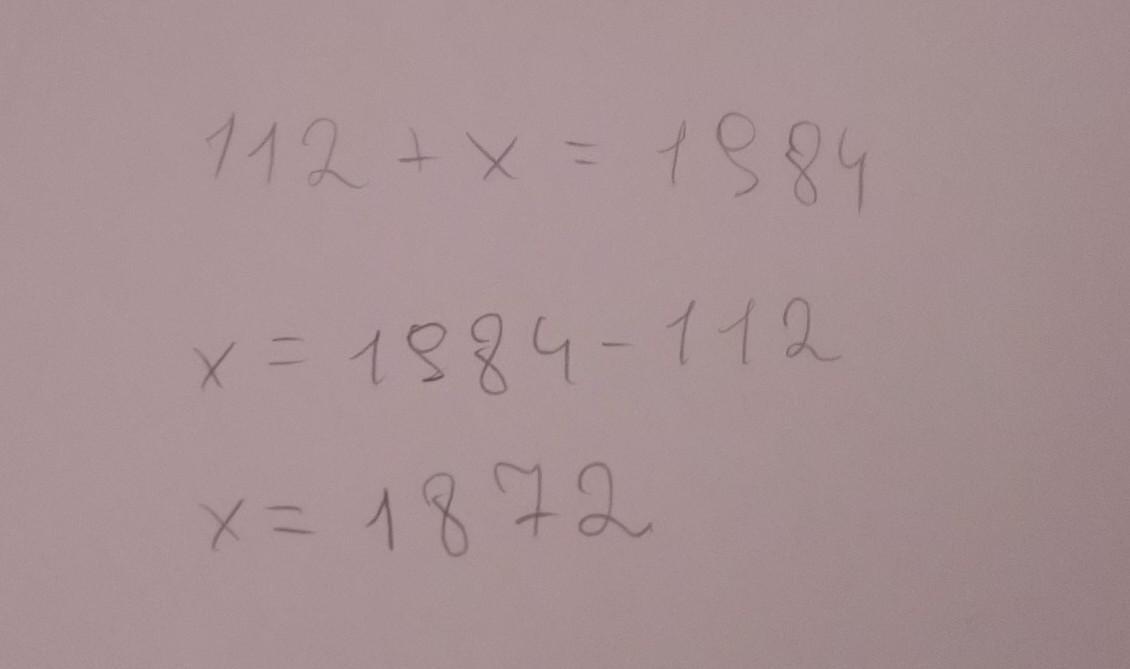 112 + x = 1984
x = 1984 - 112
x = 1872